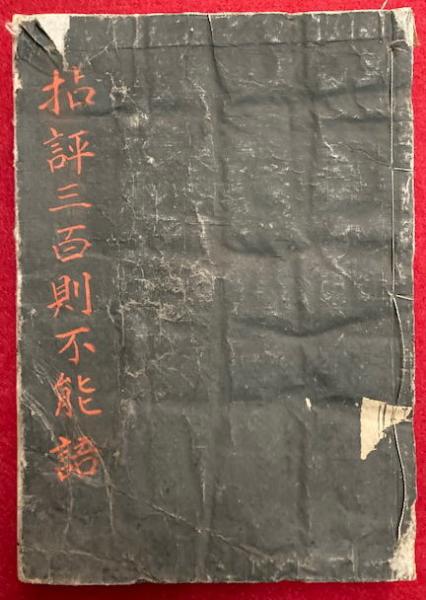 拈評三百則不能語